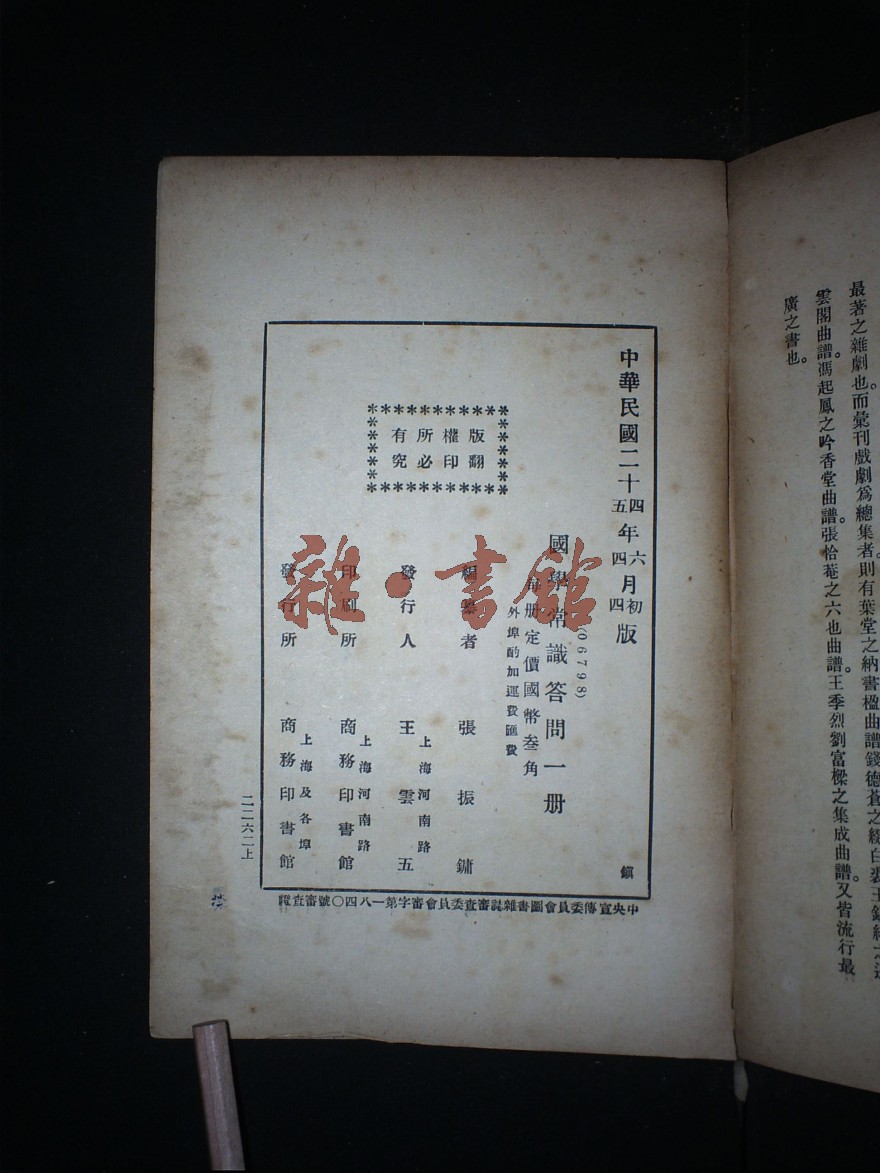 最著之雜劇也。而彙刊戲劇為總集者。則有葉堂之納書楹曲譜錢德蒼之綴白裘王錫純之遏
雲閣曲譜。馮起鳳之吟香堂曲譜。張怡菴之六也曲譜。王季烈劉富樑之集成曲譜。又皆流行最
廣之書也。
中華民國二十四年六月初版
五 四 四
(06798)
國學常識答問一册
每册定價國幣叁角
外埠酌加運費匯費
版翻
權印
所必
有究
編纂者 張振鏞
上海河南路
發行人 王雲五
上海河南路
印刷所 商務印書館
上海及各埠
發行所 商務印書館
鎮
中央宣傳委員會圖書雜誌審查委員會審字第一八四〇號審查證
二二六二上
雜·書館